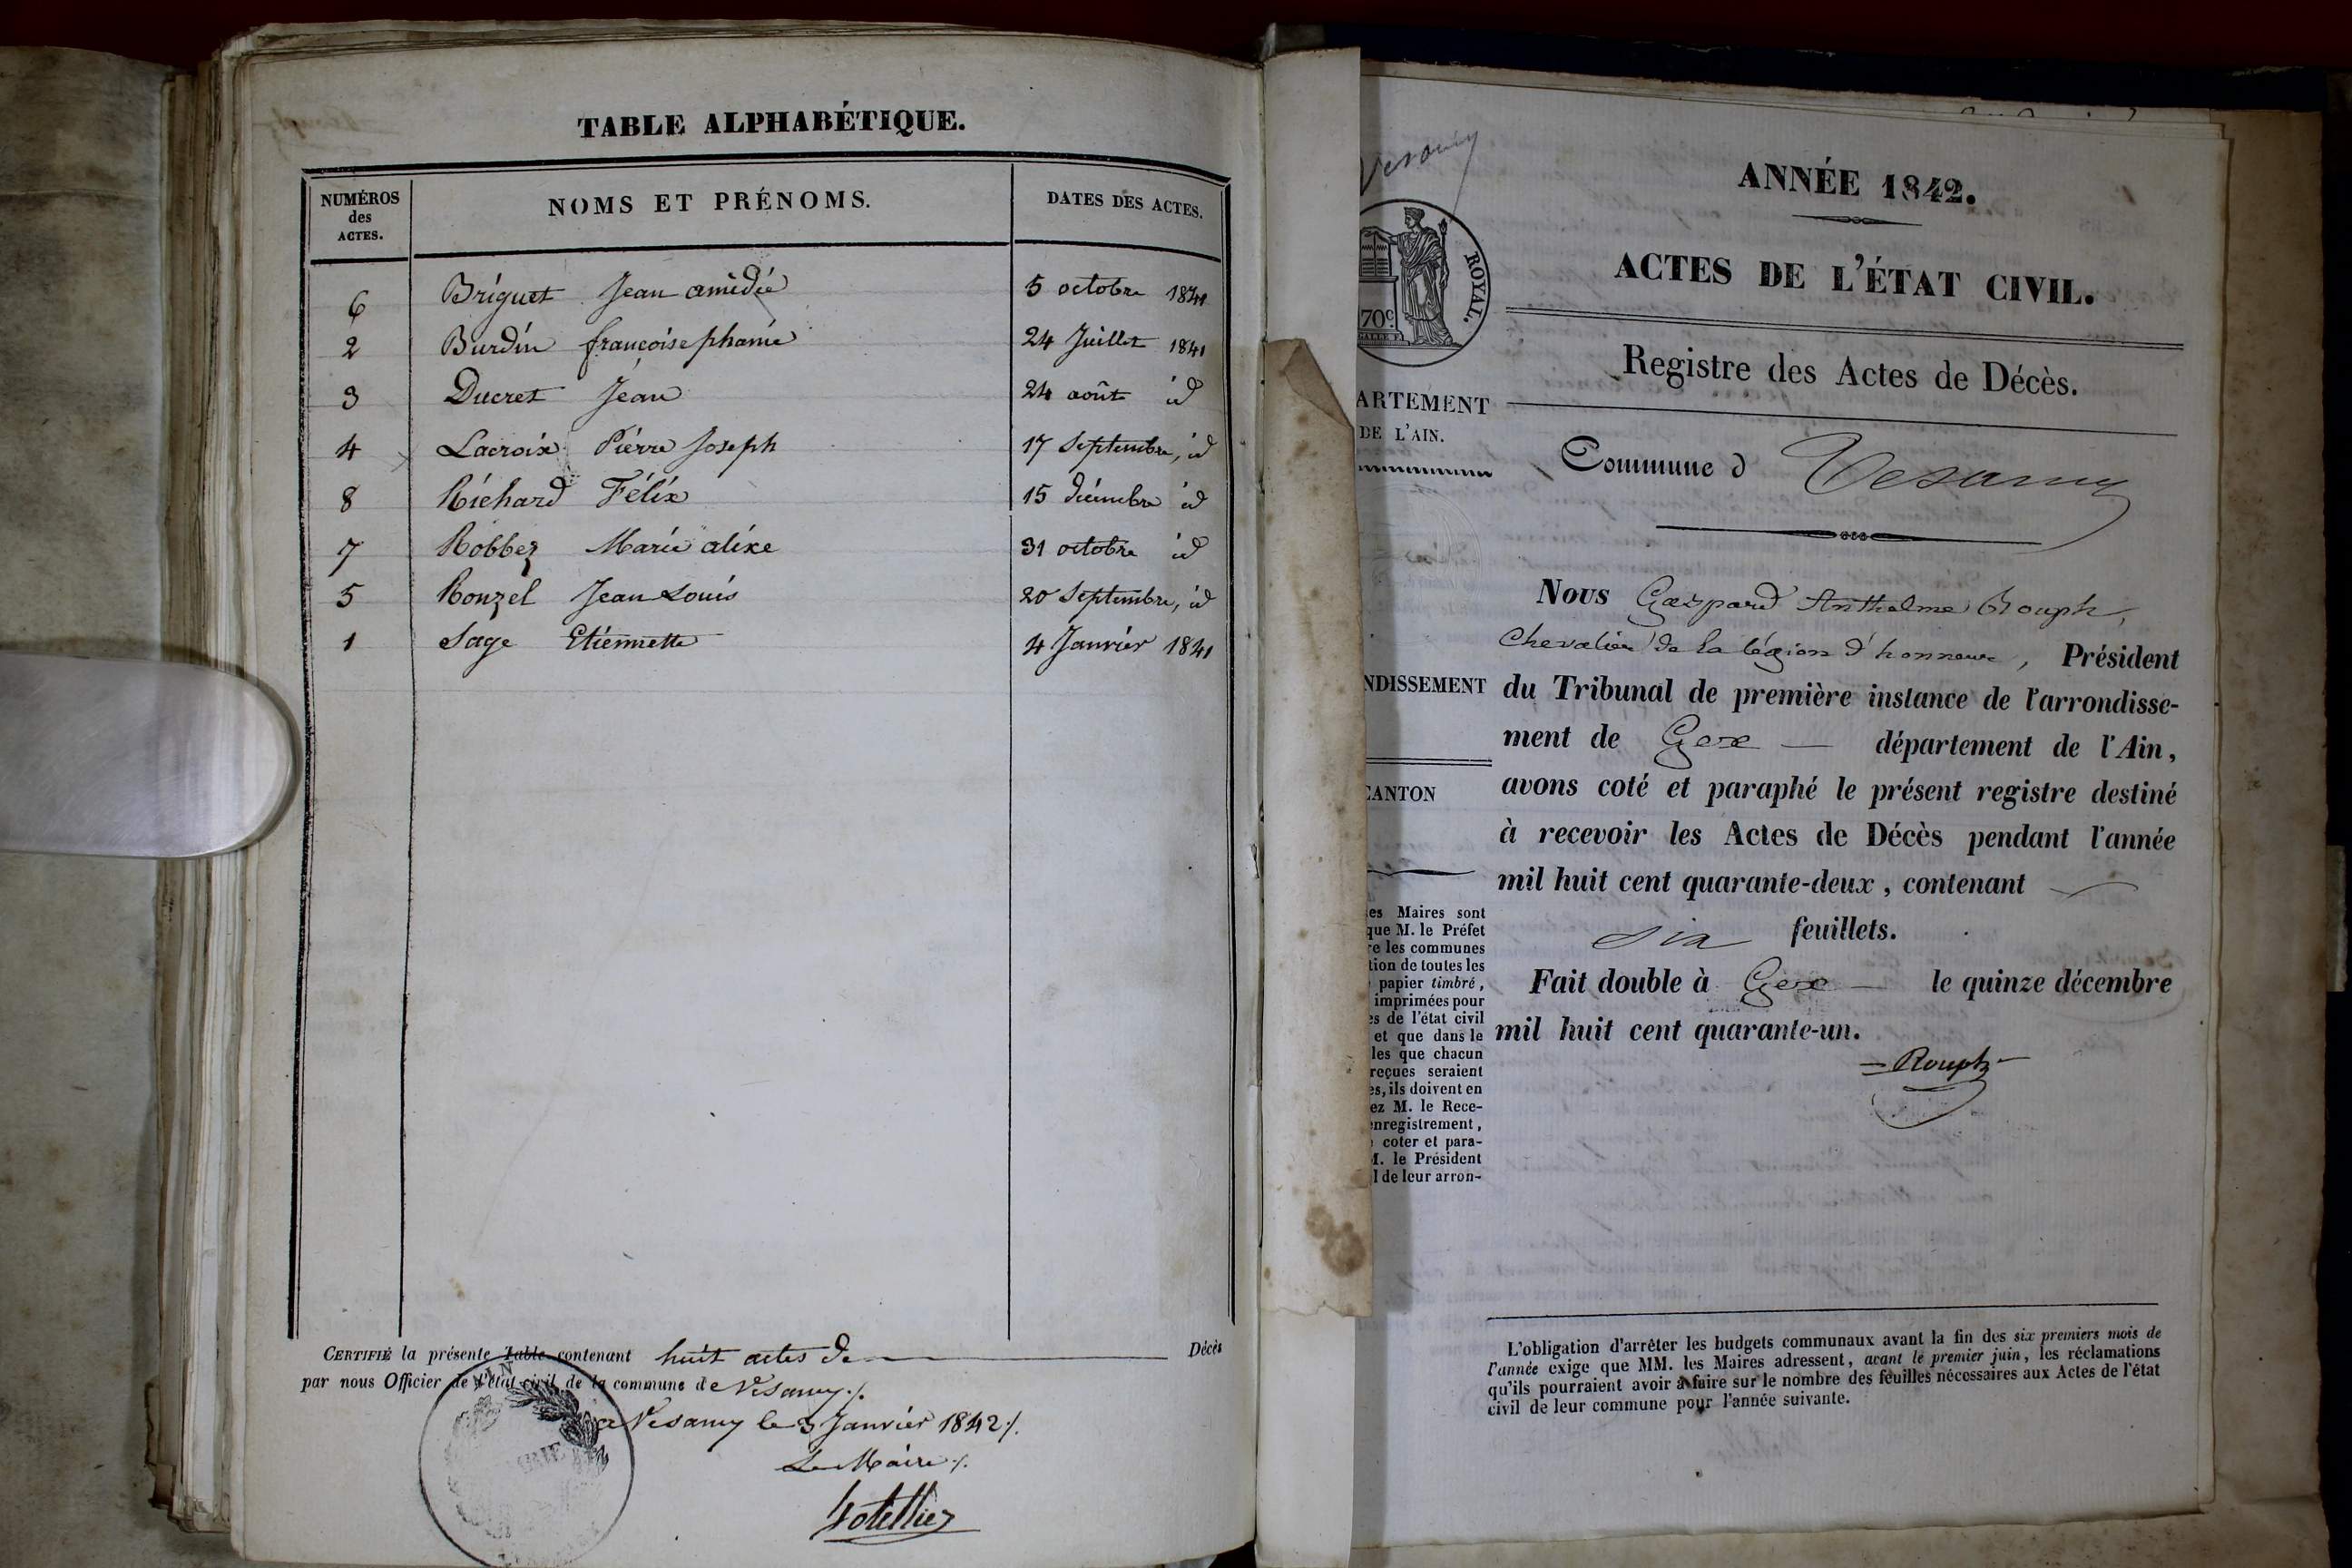 TABLE ALPHABÉTIQUE.
NUMÉROS
des
ACTES.
NOMS ET PRÉNOMS.
DATES DES ACTES.
6 Briguet Jean amédée 5 octobre 1841
2 Burdin françoise phanie 24 Juillet 1841
3 Ducret Jean 24 août id
4 Lacroix Pierre Joseph 17 Septembre, id
8 Richard Félix 15 décembre id
7 Robbez Marie alixe 31 octobre id
5 Ronzel Jean Louis 20 Septembre, id
1 Sage Etiennette 4 Janvier 1841
CERTIFIÉ la présente Table contenant huit actes de Décès
par nous Officier de l'état civil de la commune de Vesancy ./.
a Vesancy le 3 Janvier 1842 ./.
Le Maire ./.
Vesancy
ROYAL.
70c
ANNÉE 1842.
ACTES DE L'ÉTAT CIVIL.
Registre des Actes de Décès.
Commune d Vesancy
ARTEMENT
DE L'AIN.
NDISSEMENT
CANTON
es Maires sont
que M. le Préfet
re les communes
tion de toutes les
papier timbré,
imprimées pour
es de l'état civil
et que dans le
les que chacun
reçues seraient
es, ils doivent en
ez M. le Rece-
enregistrement,
coter et para-
M. le Président
l de leur arron-
Nous Gaspard Anthelme Rouph,
Chevalier de la légion d'honneur, Président
du Tribunal de première instance de l'arrondisse-
ment de Gex — département de l'Ain,
avons coté et paraphé le présent registre destiné
à recevoir les Actes de Décès pendant l'année
mil huit cent quarante-deux, contenant
six feuillets.
Fait double à Gex — le quinze décembre
mil huit cent quarante-un.
Rouph
L'obligation d'arrêter les budgets communaux avant la fin des six premiers mois de
l'année exige que MM. les Maires adressent, avant le premier juin, les réclamations
qu'ils pourraient avoir à faire sur le nombre des feuilles nécessaires aux Actes de l'état
civil de leur commune pour l'année suivante.